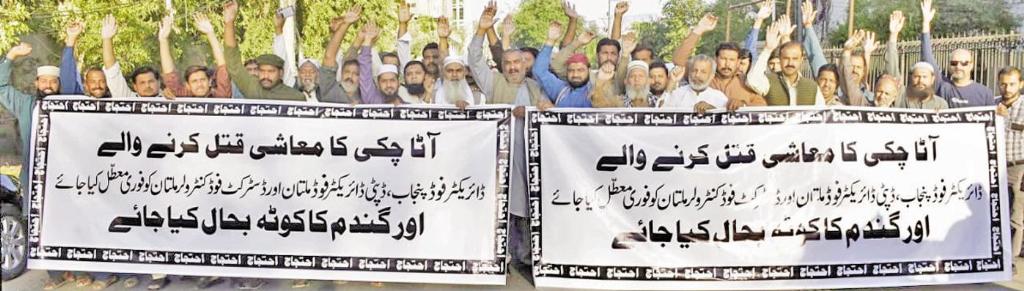 احتجاج احتجاج احتجاج احتجاج احتجاج احتجاج احتجاج احتجاج احتجاج احتجاج
آٹا چکی کا معاشی قتل کرنے والے
ڈائریکٹر فوڈ پنجاب، ڈپٹی ڈائریکٹر فوڈ ملتان اور ڈسٹرکٹ فوڈ کنٹرولر ملتان کو فوری معطل کیا جائے
اور گندم کا کوٹہ بحال کیا جائے
احتجاج احتجاج احتجاج احتجاج احتجاج احتجاج احتجاج احتجاج احتجاج احتجاج
احتجاج احتجاج احتجاج احتجاج احتجاج احتجاج احتجاج احتجاج احتجاج احتجاج
آٹا چکی کا معاشی قتل کرنے والے
ڈائریکٹر فوڈ پنجاب، ڈپٹی ڈائریکٹر فوڈ ملتان اور ڈسٹرکٹ فوڈ کنٹرولر ملتان کو فوری معطل کیا جائے
اور گندم کا کوٹہ بحال کیا جائے
احتجاج احتجاج احتجاج احتجاج احتجاج احتجاج احتجاج احتجاج احتجاج احتجاج